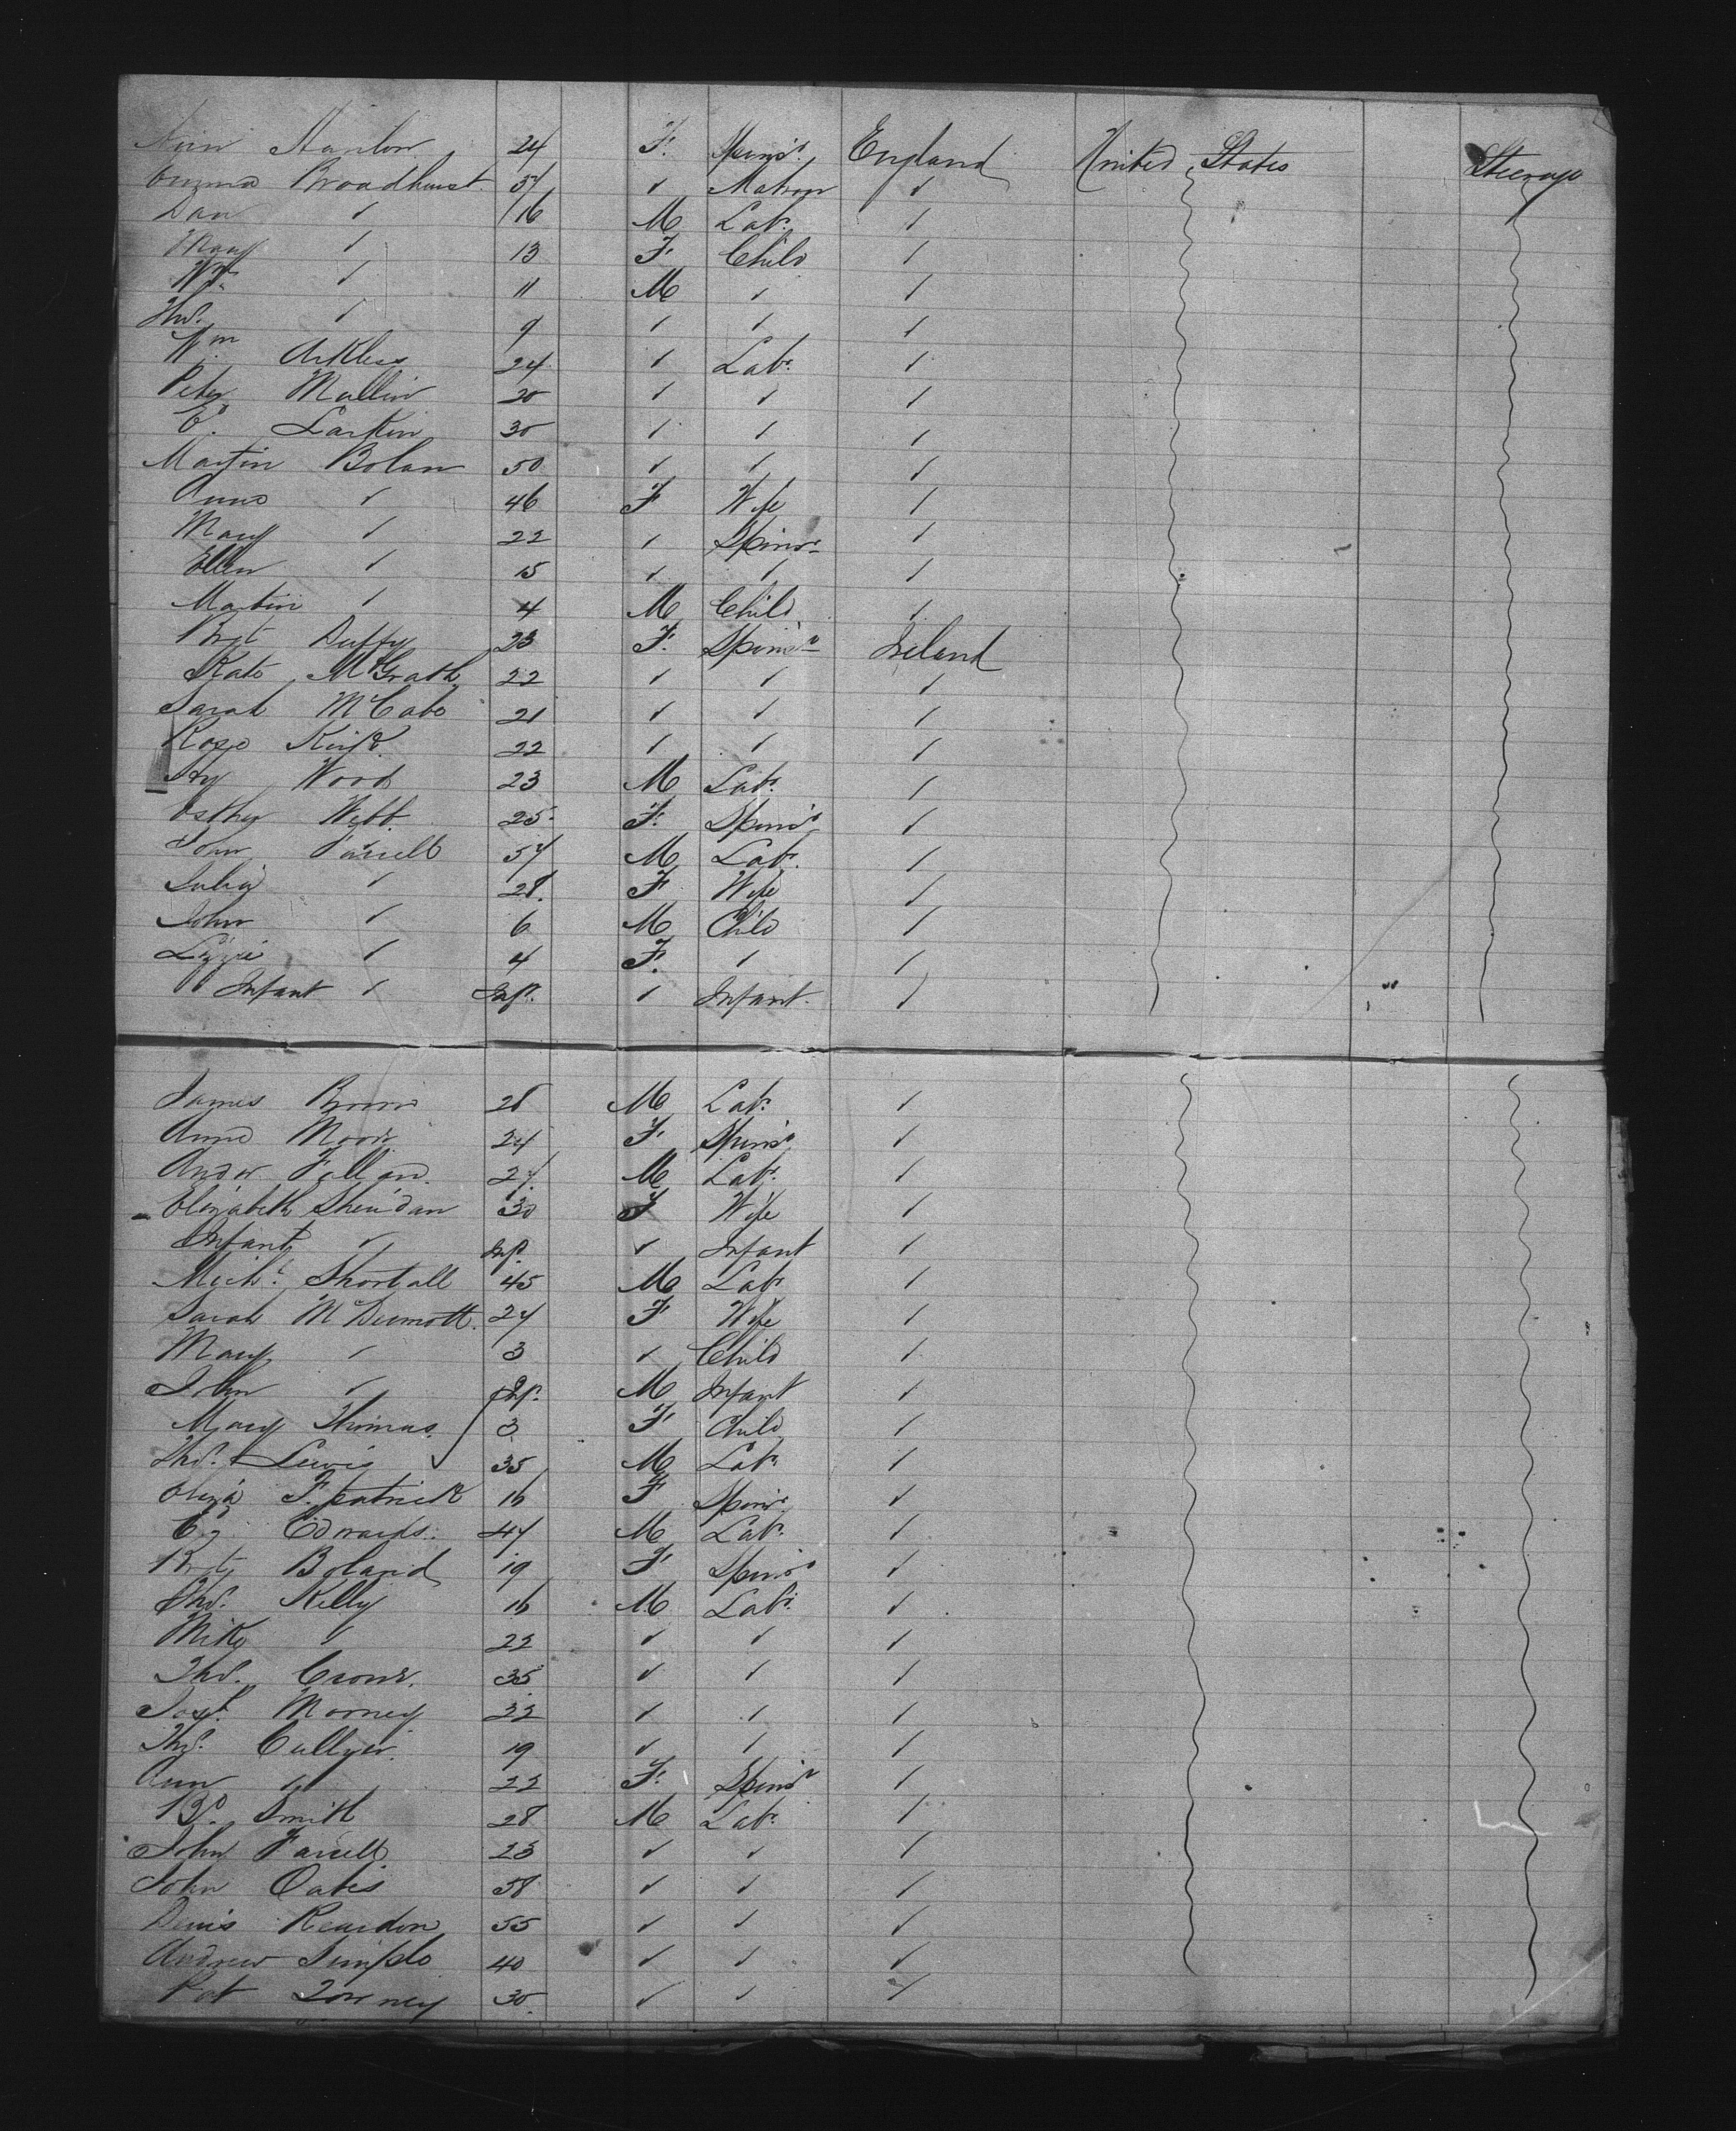 Ann Hanlon 24 F. Spinsr. England United States Steerage
Emma Broadhurst 37 ✓ Matron ✓
Dan ✓ 16 M Labr. ✓
Mary ✓ 13 F. Child ✓
Wm. ✓ 11 M ✓ ✓
Thos. ✓ 9 ✓ ✓ ✓
Wm Arkless 24 ✓ Labr. ✓
Peter Mullin 20 ✓ ✓ ✓
Ed. Larkin 30 ✓ ✓ ✓
Martin Bolan 50 ✓ ✓ ✓
Anne ✓ 46 F Wife ✓
Mary ✓ 22 ✓ Spinsr. ✓
Ellen ✓ 15 ✓ ✓ ✓
Martin ✓ 4 M Child ✓
Brgt Duffy 23 F. Spinsr. Ireland
Kate McGrath 22 ✓ ✓ ✓
Sarah McCabe 21 ✓ ✓ ✓
Rose Kirk 22 ✓ ✓ ✓
Hy Wood 23 M Labr. ✓
Esther Webb 25 F. Spinsr ✓
John Farrell 57 M Labr. ✓
Julia ✓ 28 F Wife ✓
John ✓ 6 M Child ✓
Lizzie ✓ 4 F. ✓ ✓
Infant ✓ Inft. ✓ Infant ✓
James Brown 28 M Labr. ✓
Anne Moore 24 F Spinsr ✓
Andw. Fallon 27 M Labr. ✓
Elizabeth Sheridan 30 F Wife ✓
Infant ✓ Inft. ✓ Infant ✓
Michl. Shortall 45 M Labr ✓
Sarah McDermott 27 F Wife ✓
Mary ✓ 3 ✓ Child ✓
John ✓ Inft. M Infant ✓
Mary Thomas 3 F Child ✓
Thos. Lewis 35 M Labr. ✓
Eliza F.patrick 16 F Spinsr ✓
Ed Edwards 47 M Labr. ✓
Brgt Boland 19 F Spinsr ✓
Thos. Kelly 16 M Labr. ✓
Mike ✓ 22 ✓ ✓ ✓
Thos. 35 ✓ ✓ ✓
Josh. Mooney 22 ✓ ✓ ✓
Thos. Cullyer 19 ✓ ✓ ✓
Ann ✓ 22 F. Spinsr ✓
Bd. Smith 28 M Labr. ✓
John Farrell 23 ✓ ✓ ✓
John Oates 58 ✓ ✓ ✓
Denis Reardon 55 ✓ ✓ ✓
Andrew Semple 40 ✓ ✓ ✓
Pat 30 ✓ ✓ ✓